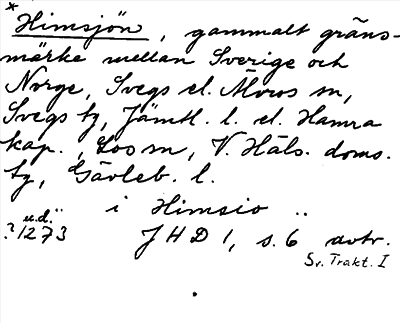 * Himsjön, gammalt gräns-
märke mellan Sverige och
Norge, Svegs el. Älvros sn,
Svegs tg, Jämtl. l. el. Hamra
kap., Los sn, V. Häls. doms.
tg, Gävleb. l.
i Himsio ..
u.d."
?1273 JHD 1, s. 6 avtr.
Sv. Trakt. I